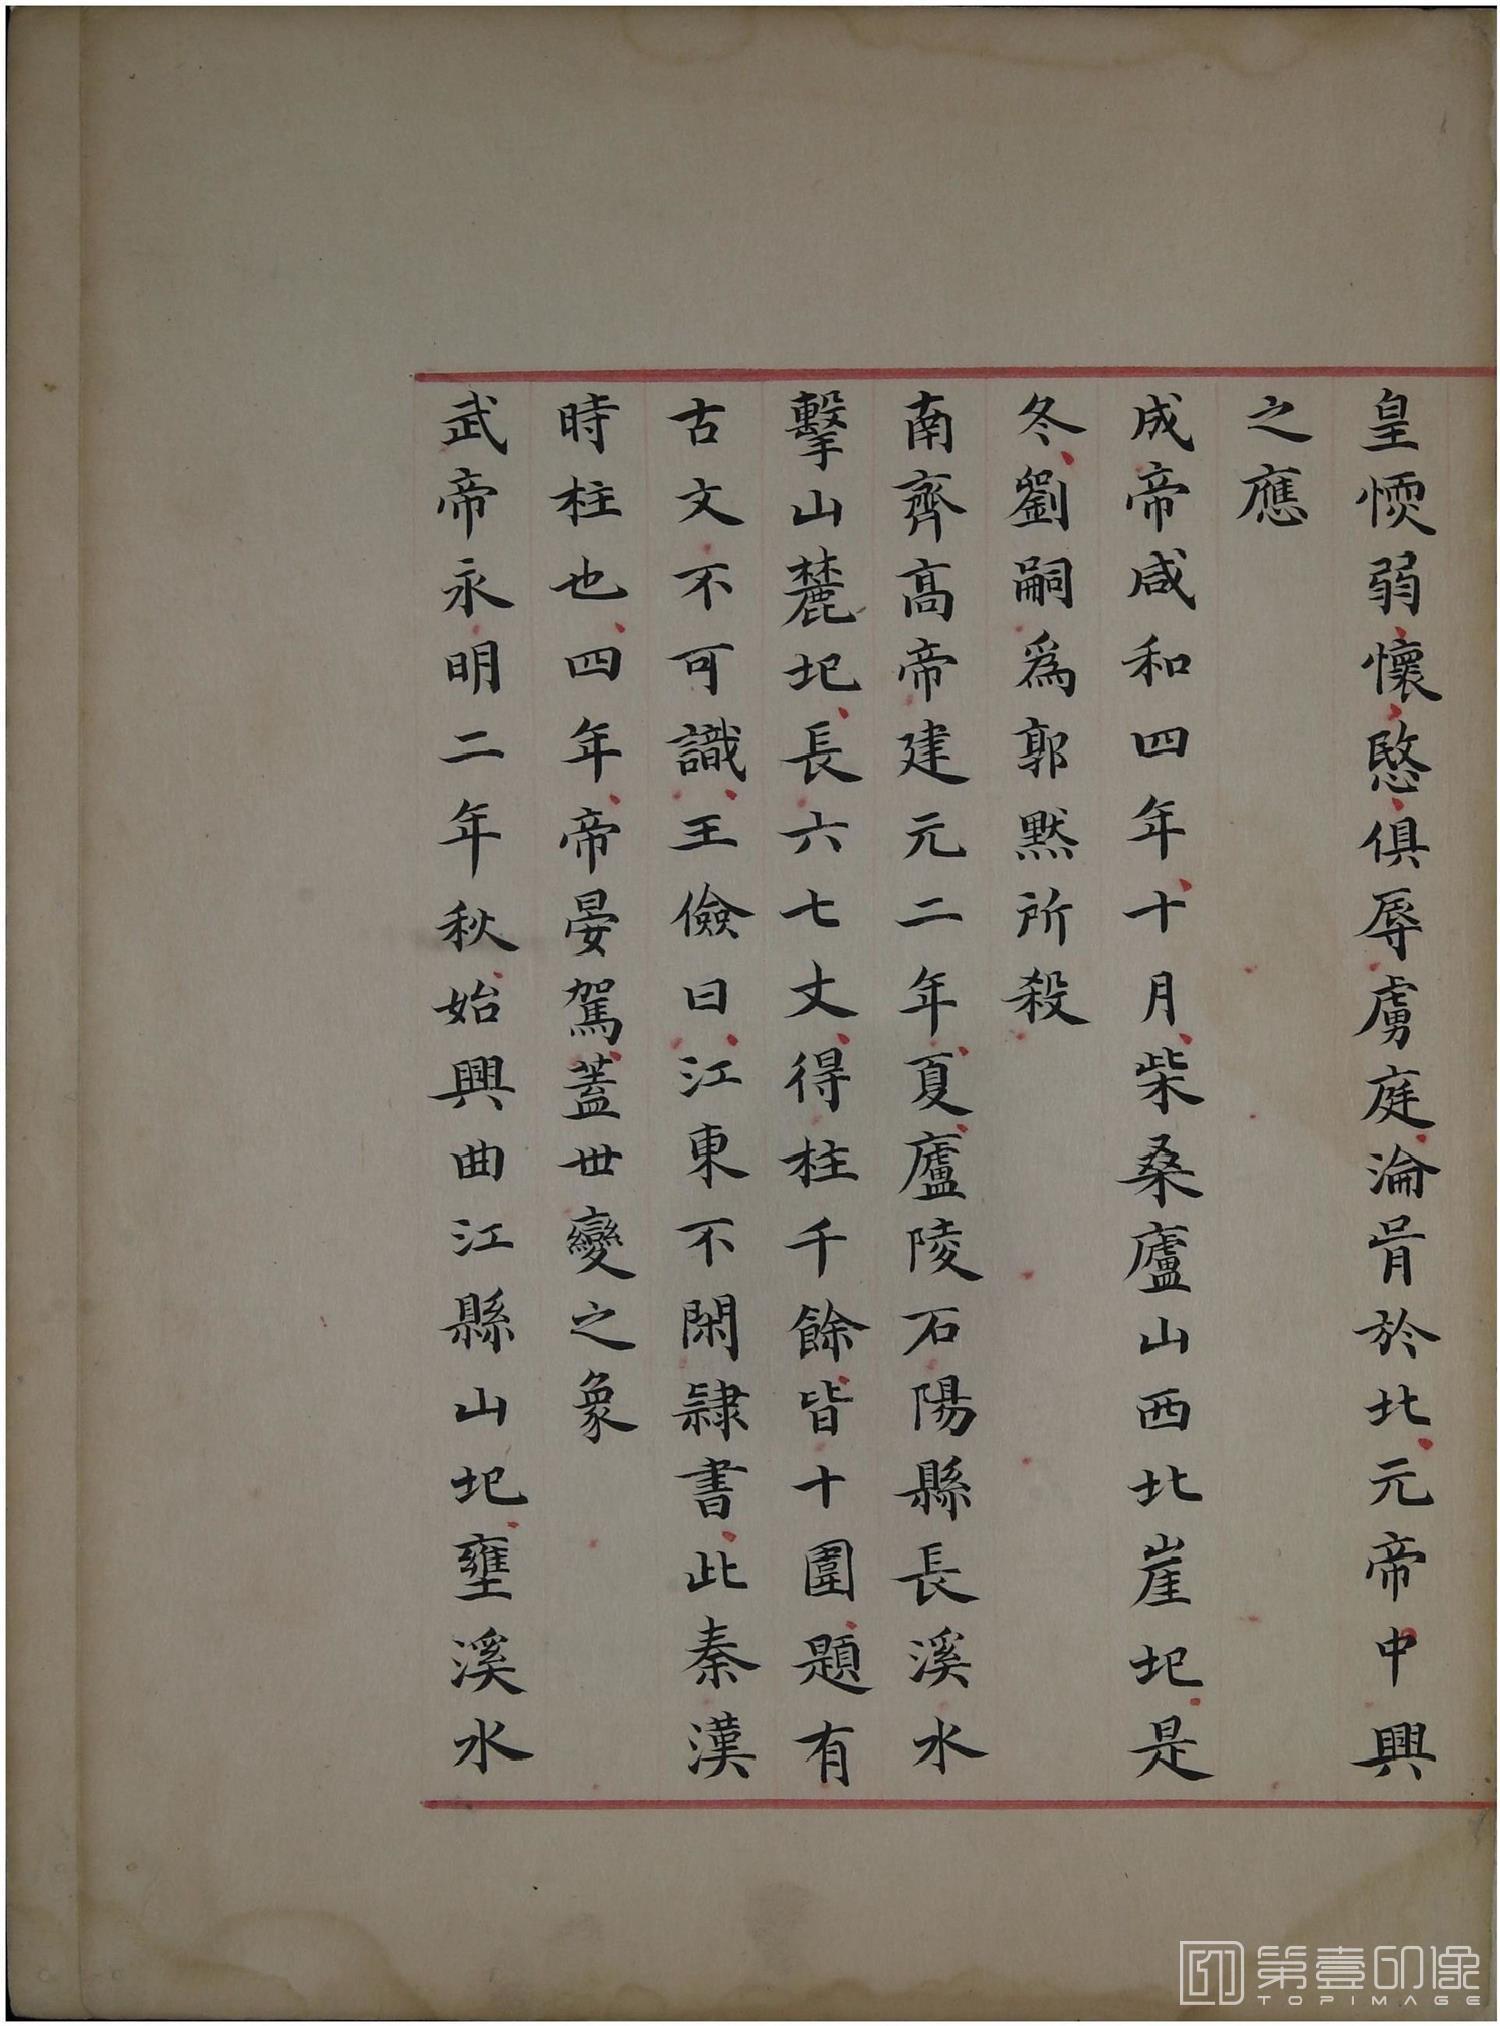 皇愞弱懷愍俱辱虜庭淪胥於北元帝中興
之應
成帝咸和四年十月柴桑廬山西北崖圮是
冬劉嗣為郭默所殺
南齊高帝建元二年夏廬陵石陽縣長溪水
擊山麓圮長六七丈得柱千餘皆十圍題有
古文不可識王儉曰江東不閑隸書此秦漢
時柱也四年帝晏駕蓋世變之象
武帝永明二年秋始興曲江縣山圮壅溪水
第壹印像
TOPIMAGE